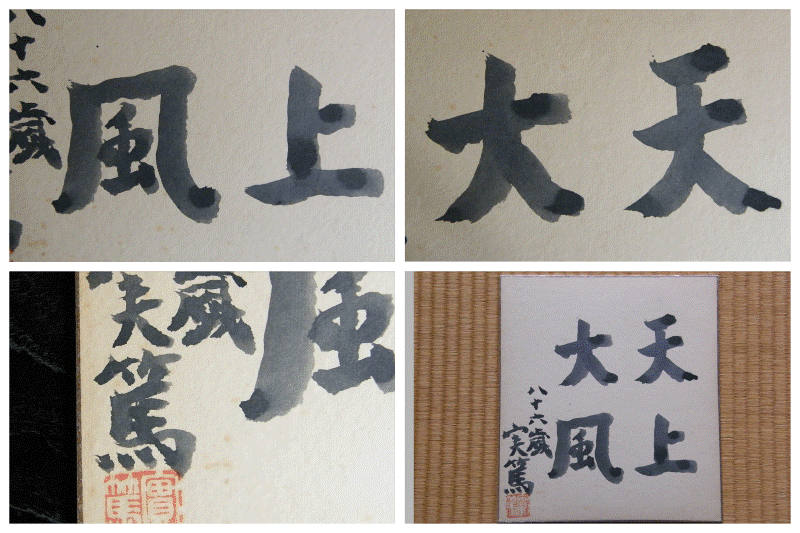 上
風
八十六歳
天
大
風
歳
実篤
實篤
天上
大風
八十六歳
実篤
實篤